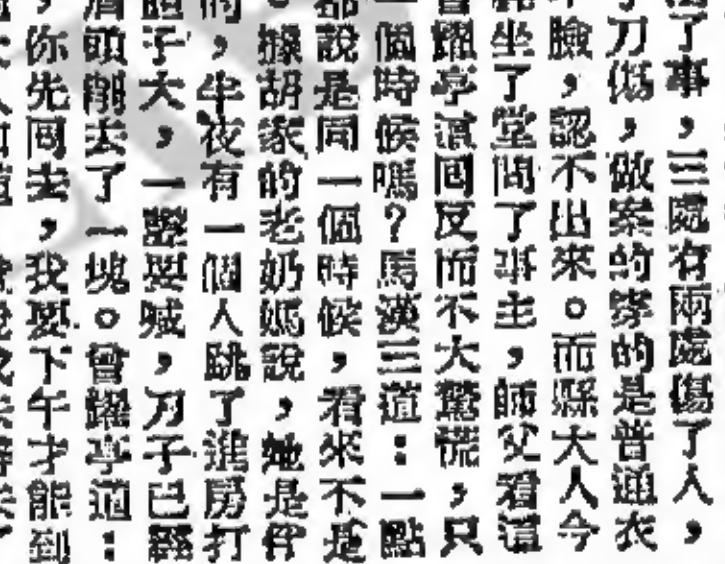 了事，三處有兩處傷了人，
刀傷，做案的穿的是普通衣
臉，認不出來。而縣大人今
坐了堂問了事主，師父看這
曾耀亭這回反而不大驚慌，只
一個時候嗎？馬漢三道：一點
都說是同一個時候，看來不是
。據胡家的老奶媽說，她是伴
的，半夜有一個人跳了進房打
子大，一要喊，刀子已經
頭削去了一塊。曾耀亭道：
，你先回去，我要下午才能到